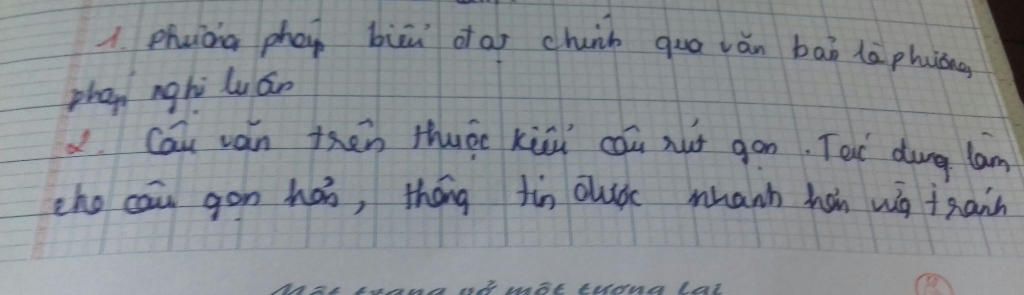 1. Phương pháp biểu đạt chính qua văn bản là phương
pháp nghị luận
2. Câu văn trên thuộc kiểu câu rút gọn. Tác dụng làm
cho câu gọn hơn, thông tin được nhanh hơn và tránh
một tương lai